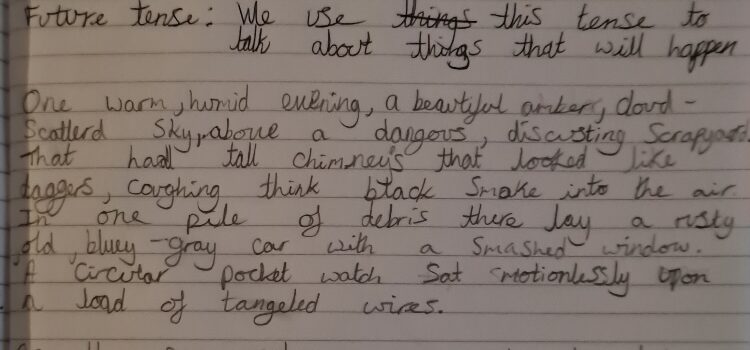 Future tense: We use things this tense to
talk about things that will happen
One warm, humid evening, a beautiful amber, cloud-
Scotterd Sky, above a dangous, discusting Scrapyard.
That had tall chimney's that looked like
daggers, coughing think black Smoke into the air.
In one pile of debris there lay a rusty
old, bluey-gray car with a Smashed window.
A Circular pocket watch Sat motionlessly upon
a load of tangeled wires.